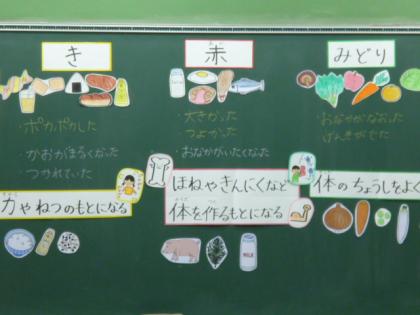 き
・ポカポカした
かおがまるくなった
つかれていた
力やねつのもとになる
赤
・大きかった
つよかった
・おなかがいたくなった
ほねやきんにくなど
体を作るもとになる
MILK
みどり
・おなかがなおった
げんきがでた
体のちょうしをよく